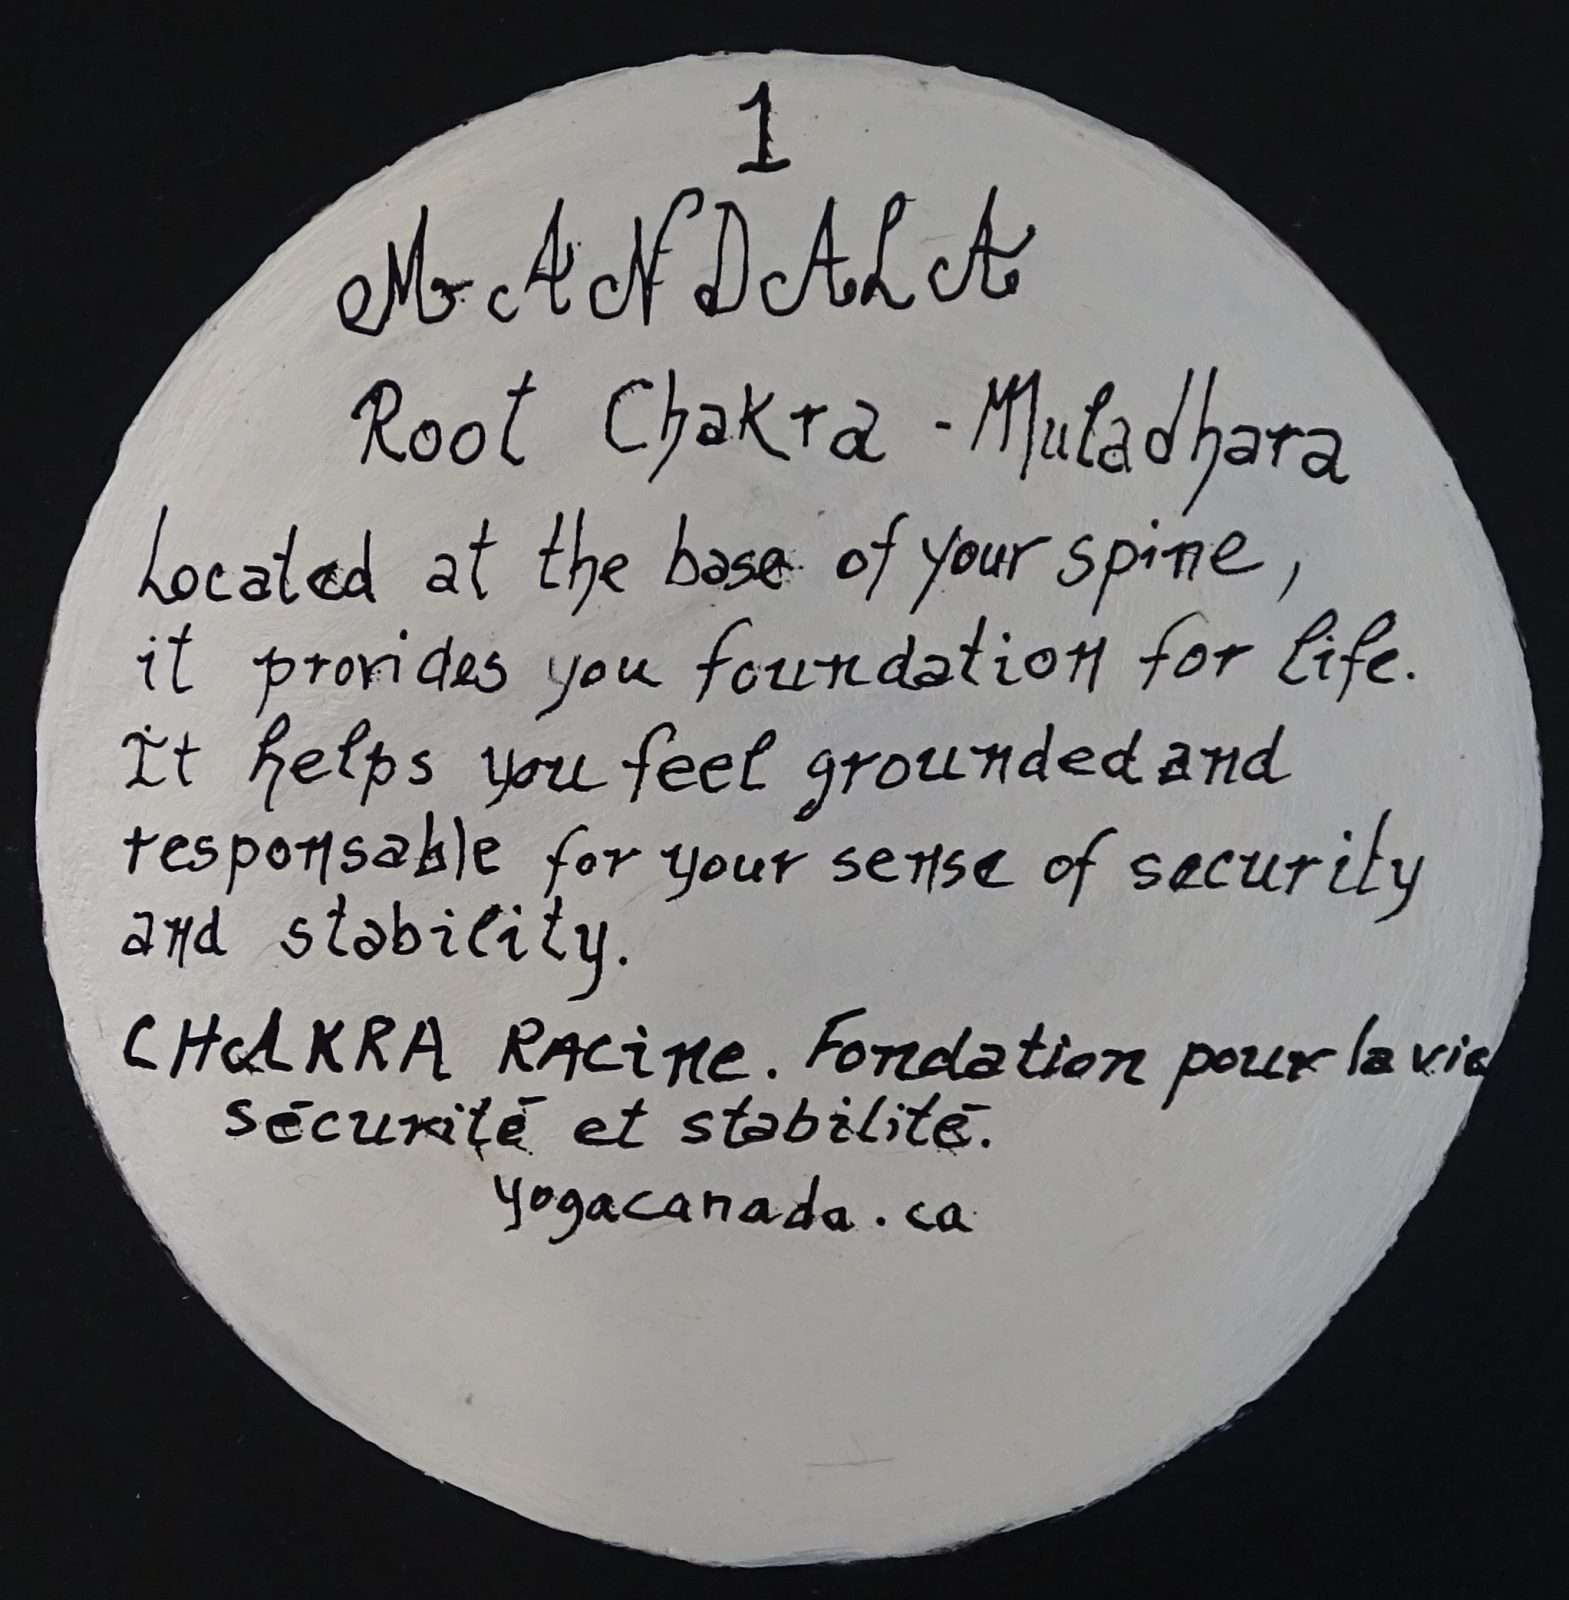 1
MANDALA
Root Chakra - Muladhara
Located at the base of your spine,
it provides you foundation for life.
It helps you feel grounded and
responsable for your sense of security
and stability.
CHAKRA RAciNe. Fondation pour la vie
sécurité et stabilité.
yogacanada.ca